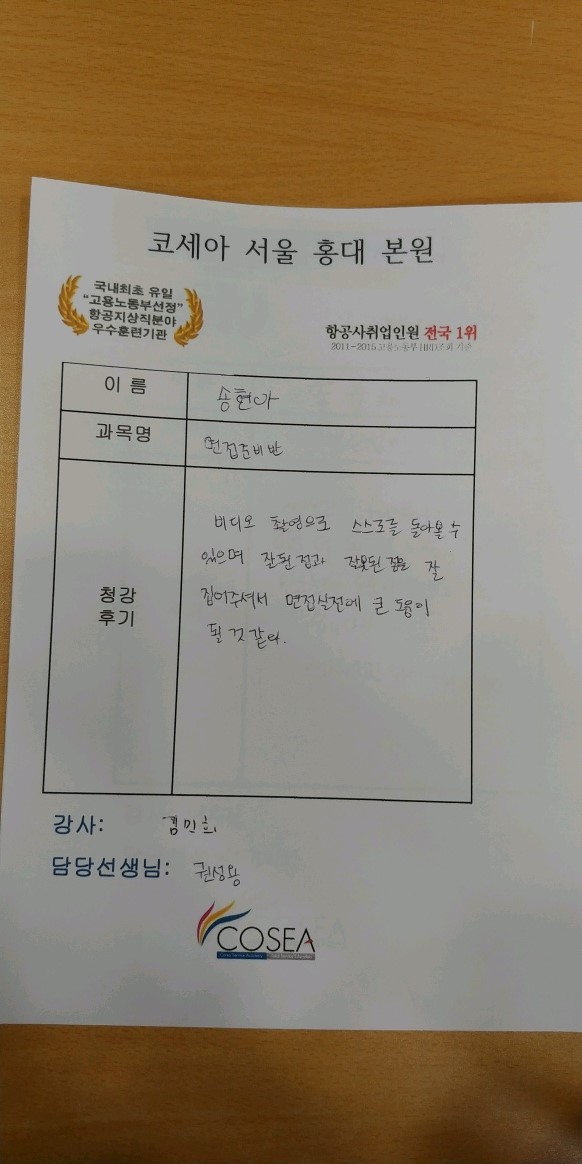 코세아 서울 홍대 본원
국내최초 유일
"고용노동부선정"
항공지상직분야
우수훈련기관
항공사취업인원 전국 1위
2011-2015 고용노동부 HRD조회 기준
이 름
송현아
과목명
면접준비반
청강
후기
비디오 촬영으로 스스로를 돌아볼 수
있으며 잘된점과 잘못된 점을 잘
집어주셔서 면접실전에 큰 도움이
될 것 같다.
강사: 김민희
담당선생님: 권성용
COSEA